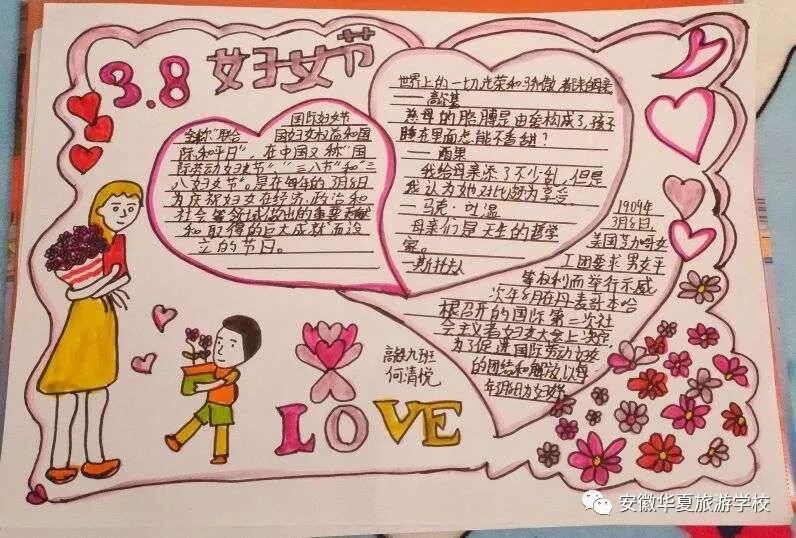 3.8 妇女节
国际妇女节
全称"联合
国妇女权益和国
际和平日"，在中国又称"国
际劳动妇女节"，"三八节"和"三
八妇女节"。是在每年的3月8日
为庆祝妇女在经济、政治和
社会等领域做出的重要贡献
和取得的巨大成就而设
立的节日。
世界上的一切光荣和骄傲，都来自母亲
高尔基
慈母的胳膊是由爱构成了，孩子
睡在里面怎能不香甜？
— 雨果
我给母亲添了不少乱，但是
我认为她对此颇为享受
— 马克·吐温
母亲们是天生的哲学
家。
斯托夫人
1909年
3月8日，
美国芝加哥女
工团要求男女平
等权利而举行示威
次年8月在丹麦哥本哈
根召开的国际第二次社
会主义者妇女大会上决定，
为了促进国际劳动妇女
的团结和解放，以每
年3月8日为妇女节
高铁九班
何清悦
LOVE
安徽华夏旅游学校